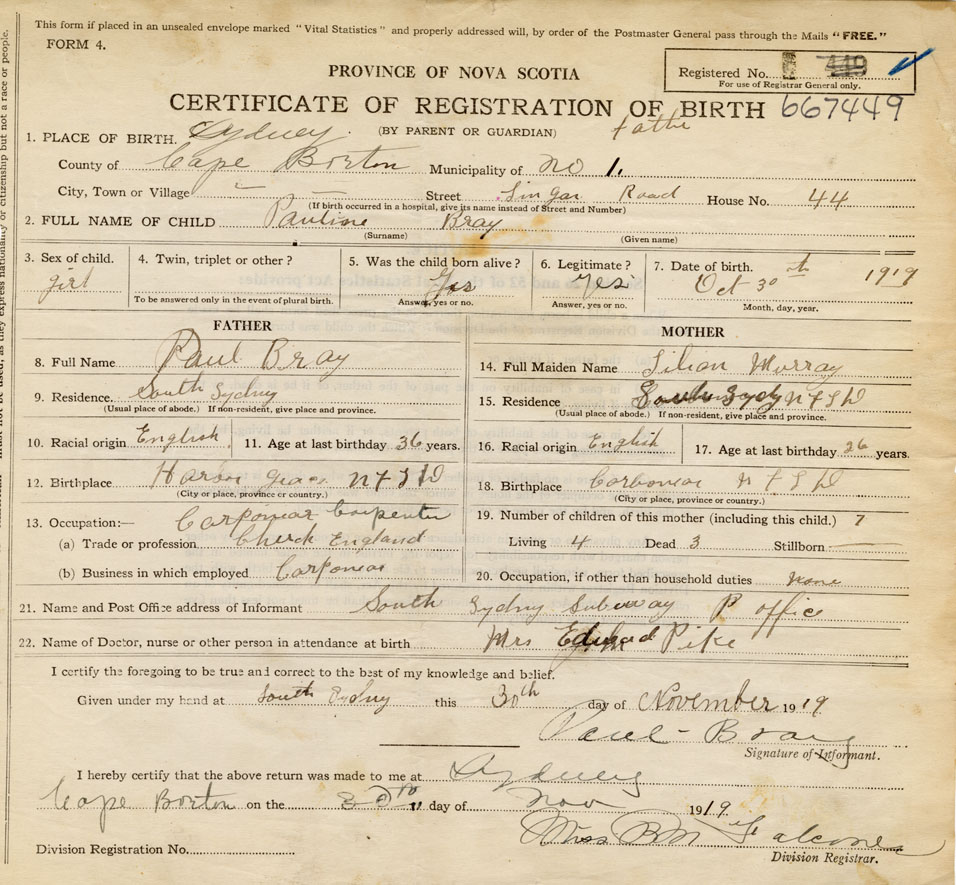 This form if placed in an unsealed envelope marked "Vital Statistics" and properly addressed will, by order of the Postmaster General pass through the Mails "FREE."
FORM 4.
PROVINCE OF NOVA SCOTIA
Registered No. 449
For use of Registrar General only.
CERTIFICATE OF REGISTRATION OF BIRTH 667449
(BY PARENT OR GUARDIAN)
1. PLACE OF BIRTH. Sydney
County of Cape Borton Municipality of no 1.
City, Town or Village Street Lingan Road House No. 44
(If birth occurred in a hospital, give its name instead of Street and Number)
2. FULL NAME OF CHILD Pauline Bray
(Surname) (Given name)
3. Sex of child. 4. Twin, triplet or other? 5. Was the child born alive? 6. Legitimate? 7. Date of birth.
girl Yes Yes Oct 30th 1919
To be answered only in the event of plural birth. Answer, yes or no. Answer, yes or no. Month, day, year.
FATHER
8. Full Name Paul Bray
9. Residence. South Sydny
(Usual place of abode.) If non-resident, give place and province.
10. Racial origin English 11. Age at last birthday 36 years.
12. Birthplace Harbor Grace NFLD
(City or place, province or country.)
13. Occupation:— Carpenter
(a) Trade or profession England
(b) Business in which employed
MOTHER
14. Full Maiden Name Lilian Murray
15. Residence NFLD
(Usual place of abode.) If non-resident, give place and province.
16. Racial origin English 17. Age at last birthday 26 years.
18. Birthplace Carbonear NFLD
(City or place, province or country.)
19. Number of children of this mother (including this child.) 7
Living 4 Dead 3 Stillborn —
20. Occupation, if other than household duties none
21. Name and Post Office address of Informant South Sydny Subway P office
22. Name of Doctor, nurse or other person in attendance at birth Mrs Pike
I certify the foregoing to be true and correct to the best of my knowledge and belief.
Given under my hand at South Sydny this 30th day of November 1919
Paul Bray
Signature of Informant.
I hereby certify that the above return was made to me at Sydney
Cape Borton on the day of Nov 1919.
Miss Falcone
Division Registration No.
Division Registrar.